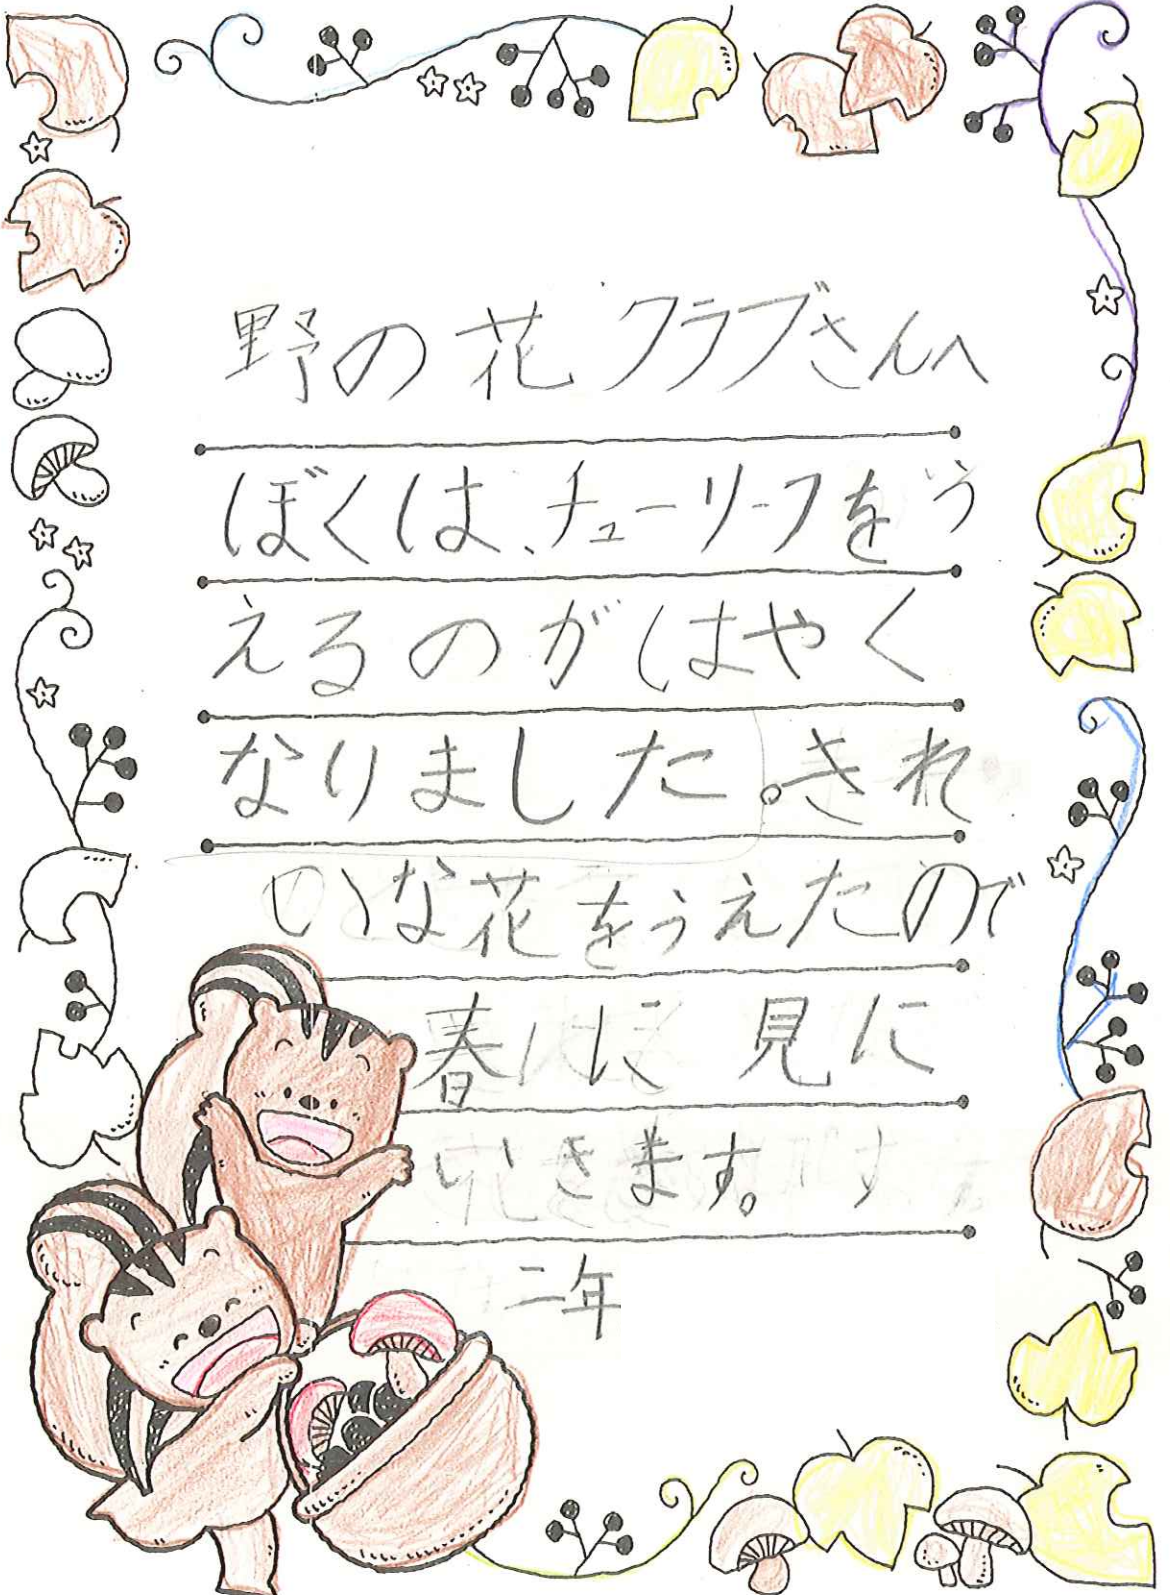 野の花クラブさんへ
ぼくは、チューリーフをう
えるのがはやく
なりました。きれ
いな花をうえたので
春に見に
いきます。
二年